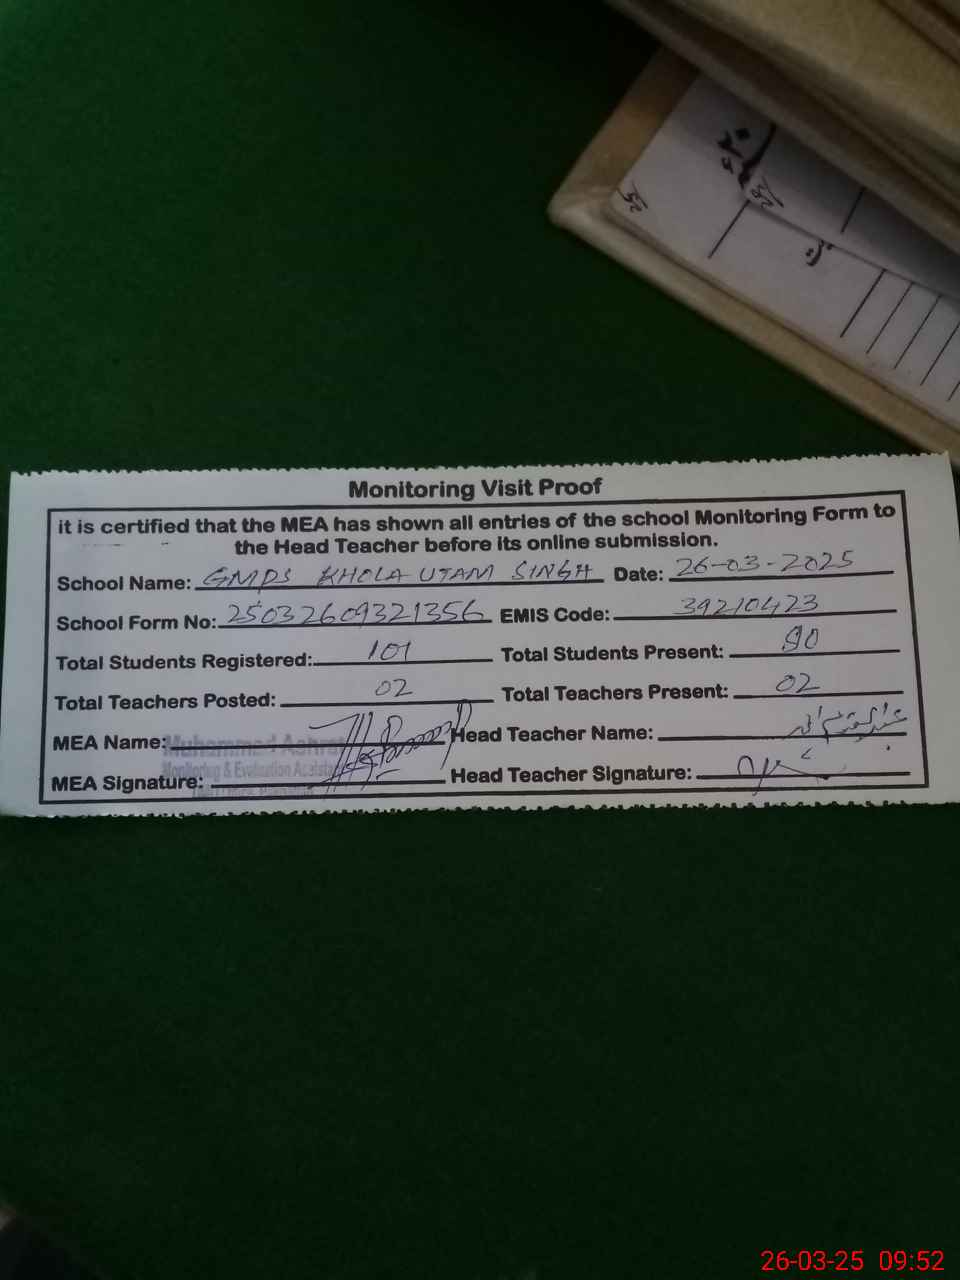 Monitoring Visit Proof
it is certified that the MEA has shown all entries of the school Monitoring Form to
the Head Teacher before its online submission.
School Name: GMPS KHOLA UTAM SINGH Date: 26-03-2025
School Form No: 25032609321356 EMIS Code: 39210423
Total Students Registered: 101 Total Students Present: 90
Total Teachers Posted: 02 Total Teachers Present: 02
MEA Name: Muhammad Ashraf Head Teacher Name:
Monitoring & Evaluation Assistant
MEA Signature: Head Teacher Signature:
26-03-25 09:52